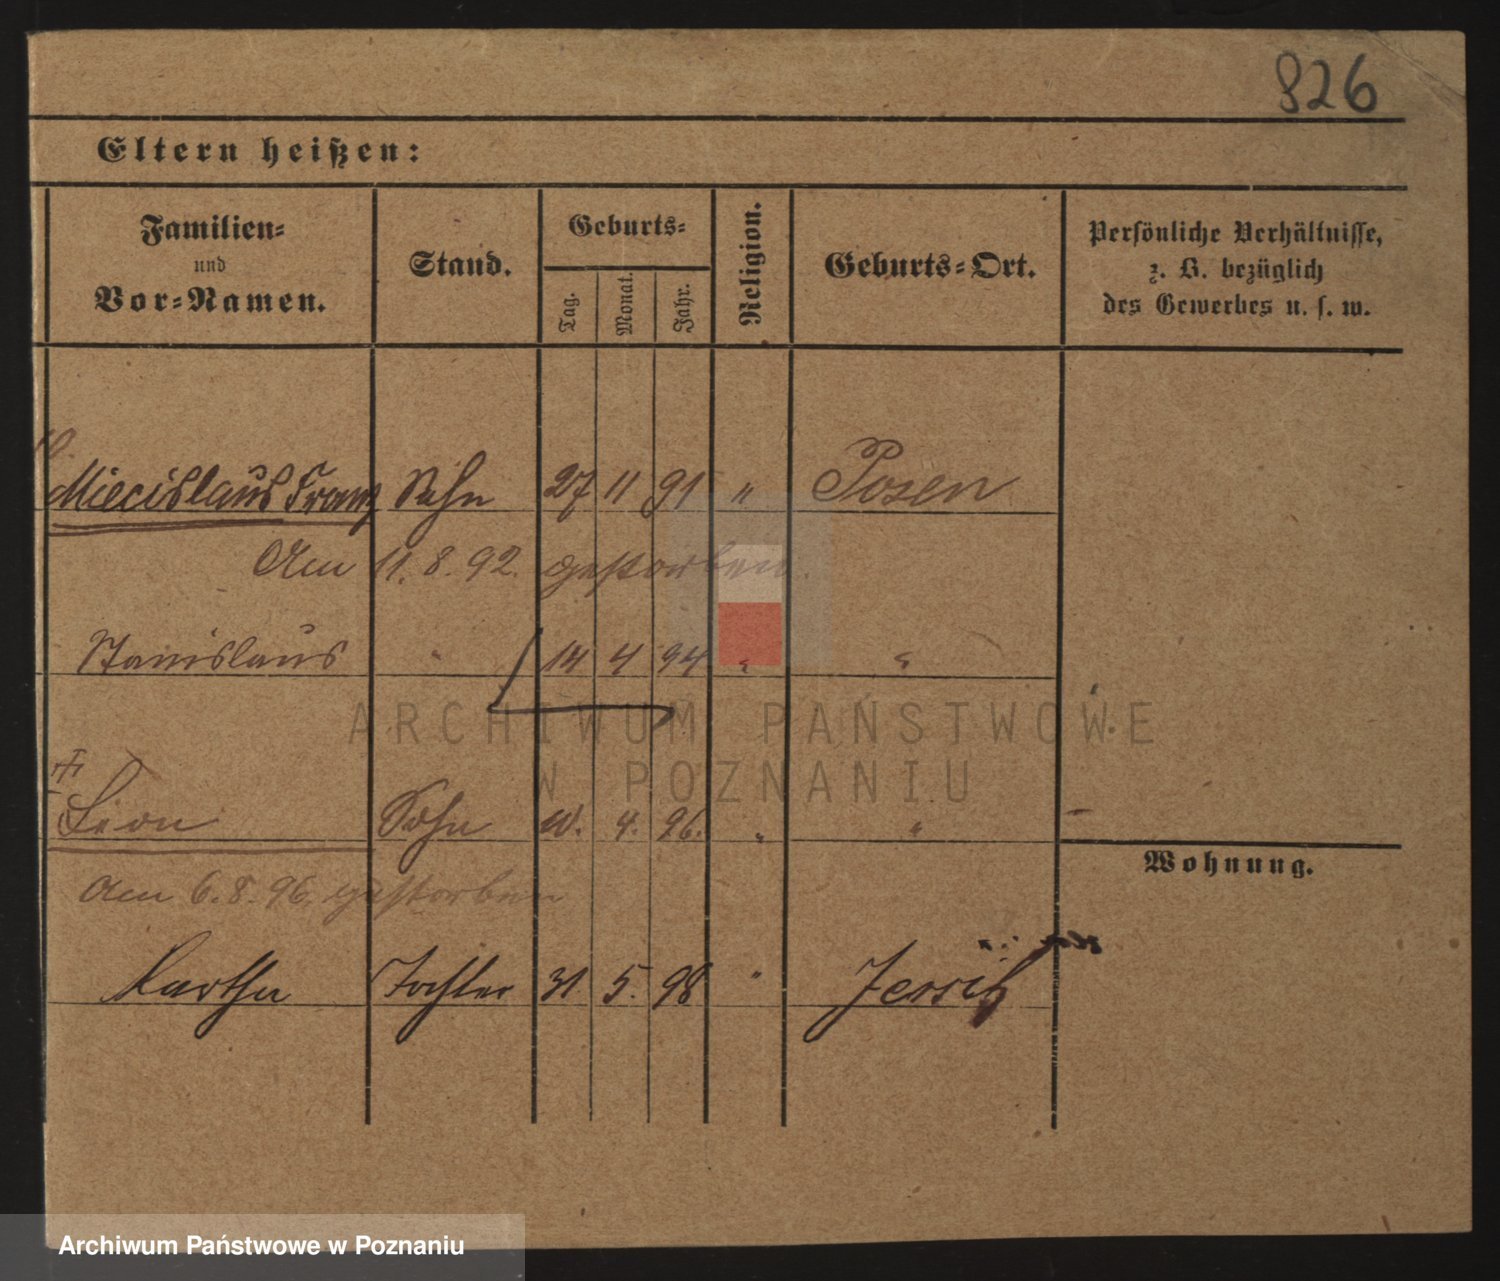 826
Eltern heißen:
Familien= und Vor=Namen.
Stand.
Geburts=
Tag.
Monat.
Jahr.
Religion.
Geburts=Ort.
Persönliche Verhältnisse,
z. B. bezüglich
des Gewerbes u. s. w.
Miecislaus Franz Sohn 27 11 91 " Posen
Am 11. 8. 92. gestorben.
Stanislaus " 14 4 94 " "
ARCHIWUM PAŃSTWOWE
W POZNANIU
Leon Sohn 10. 4. 96. " "
Wohnung.
Am 6. 8. 96. gestorben
Martha Tochter 31 5. 98 " Jersitz
Archiwum Państwowe w Poznaniu